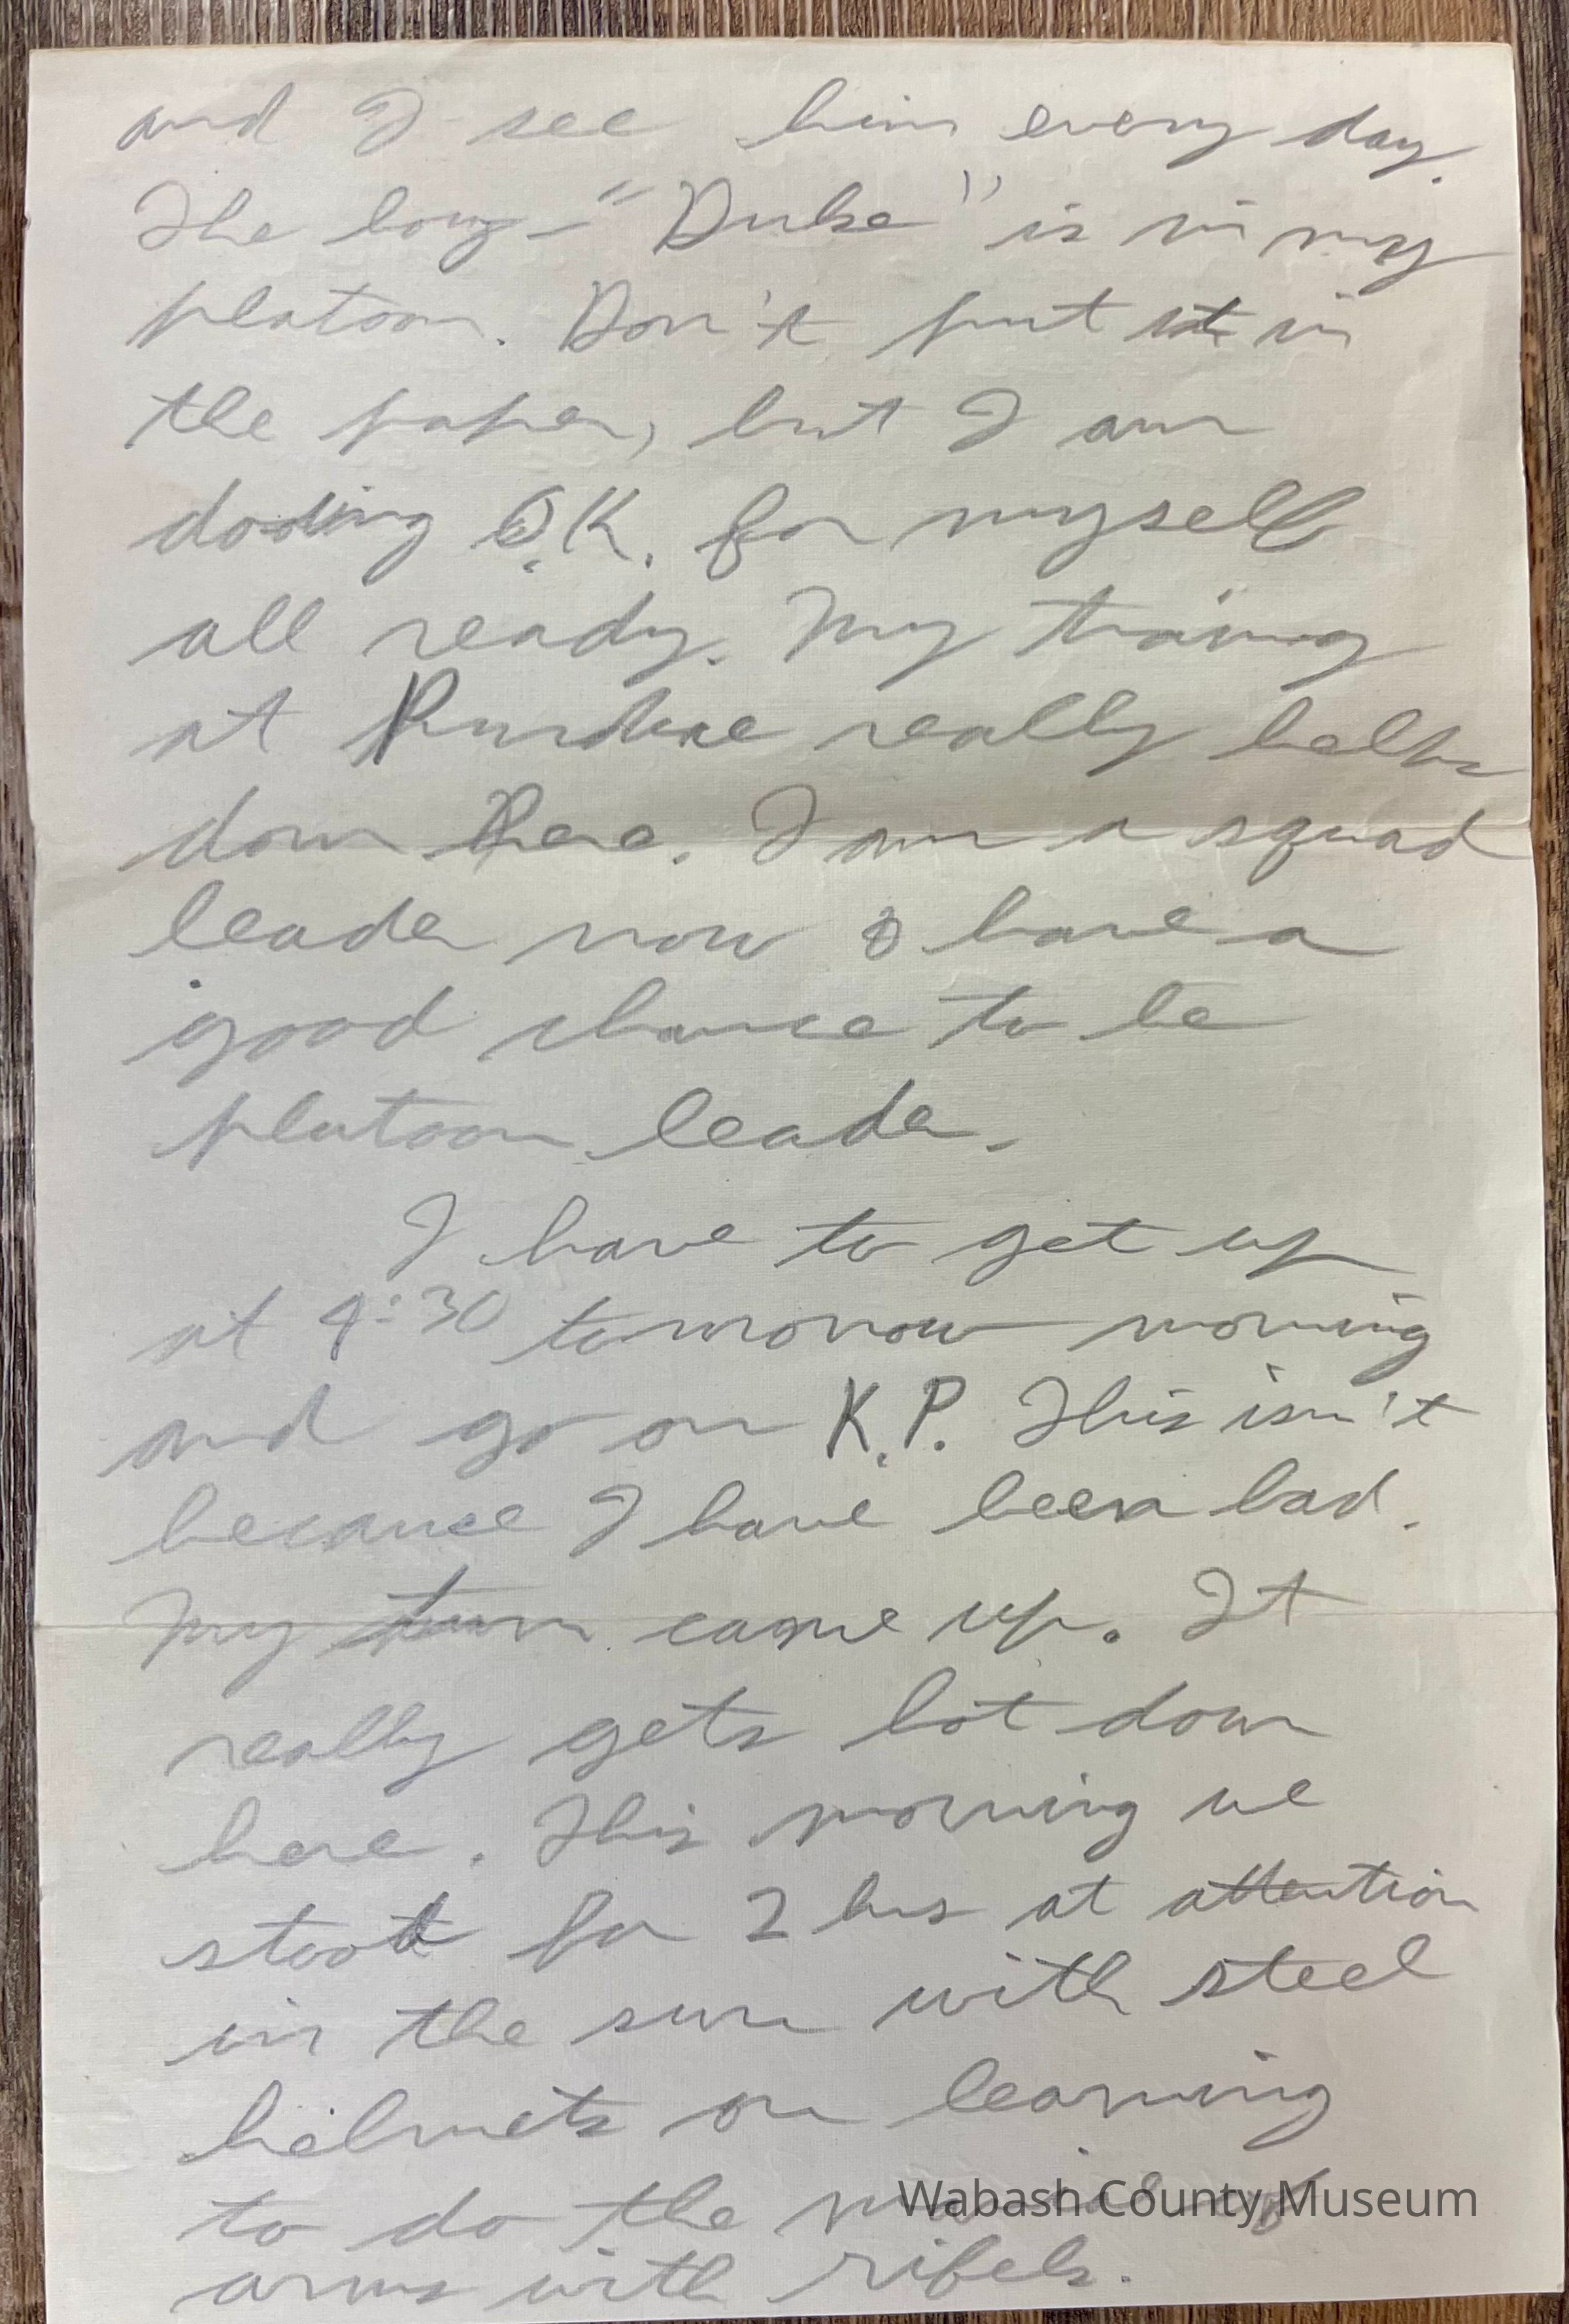 and I see him every day.
The boy - "Duke" is in my
platoon. Don't put it in
the paper, but I am
doding O.K. for myself
all ready. My traing
at Purdue really helps
down here. I am a squad
leader now & have a
good chance to be
platoon leader.
I have to get up
at 4:30 tomorrow morning
and go on K.P. This isn't
because I have been bad.
My turn came up. It
really gets hot down
here. This morning we
stood for 2 hrs at attention
in the sun with steel
helmets on learning
to do the manual of
arms with rifels.
Wabash County Museum